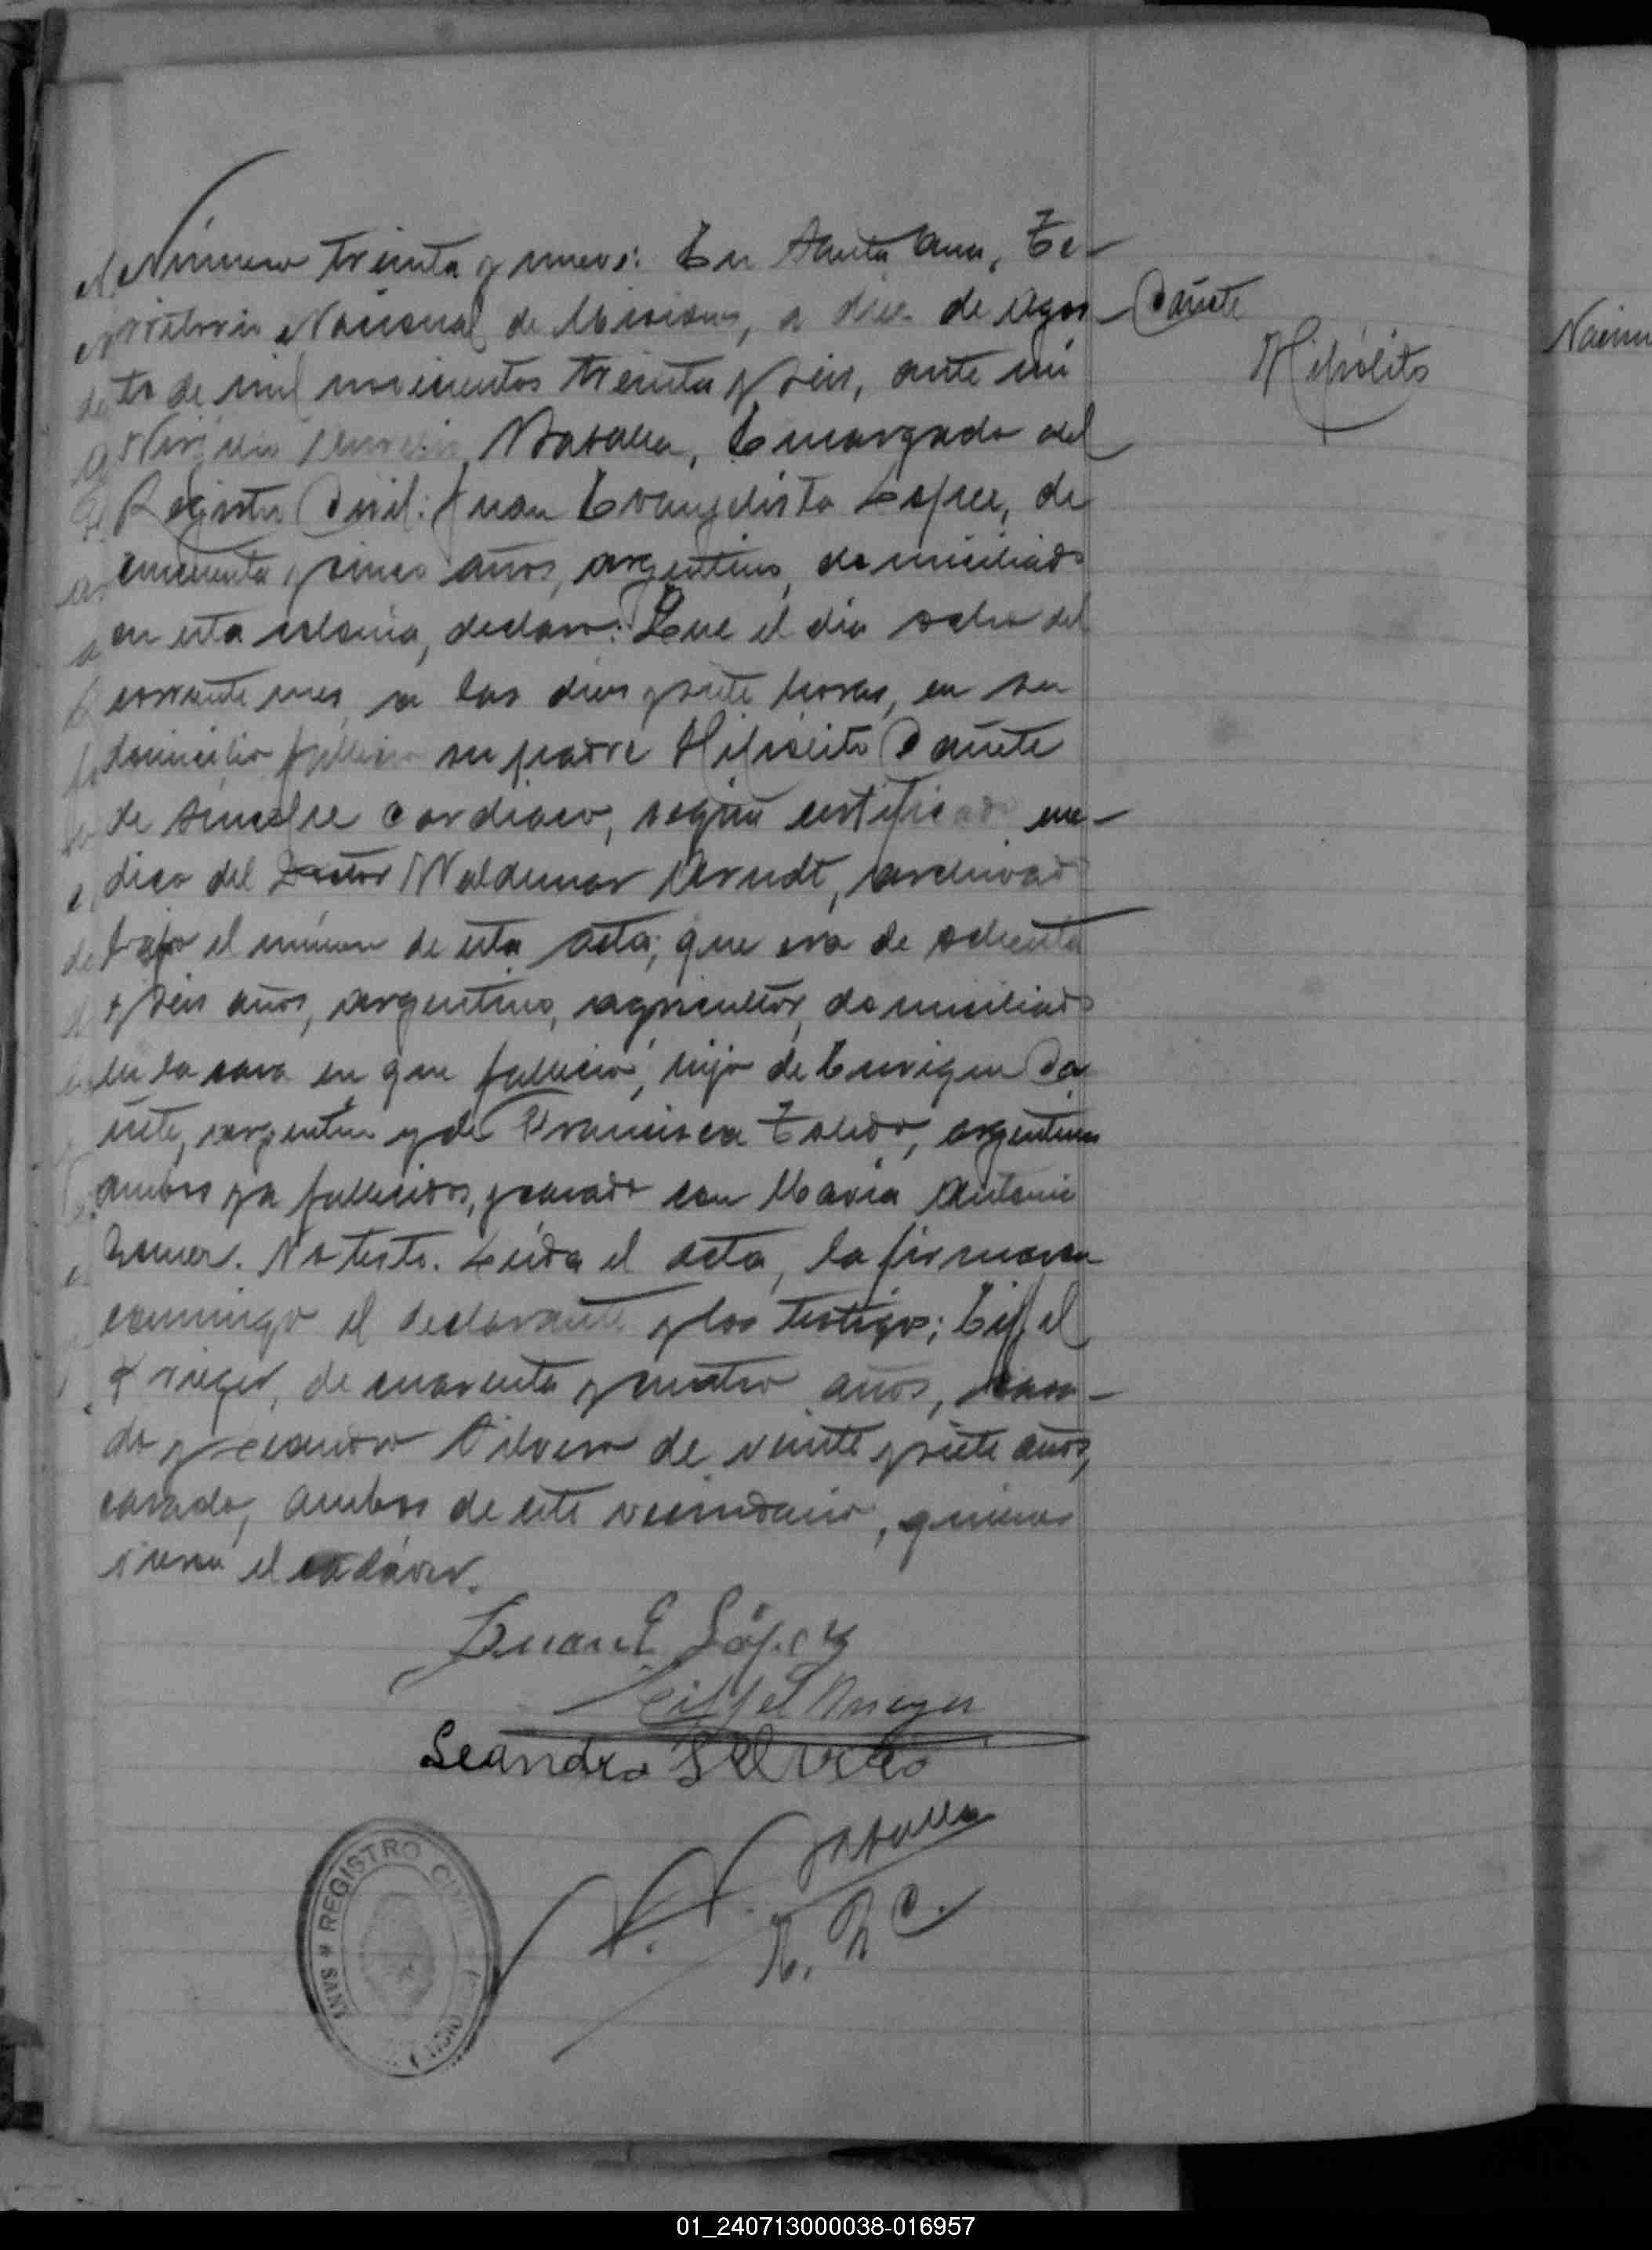 Número treinta y nueve: En Santa Ana, Te-
rritorio Nacional de Misiones, a diez de Agos-
to de mil novecientos treinta y seis, ante mí
Zaballa, Encargado del
Registro Civil: Juan Evangelista Lopez, de
cincuenta y cinco años, argentino, domiciliado
en esta colonia, declaro: Que el dia ocho del
corriente mes, a las diez y siete horas, en su
domicilio fallecio su padre Hipólito Cañete
de síncope cardiaco, según certificado me-
dico del Doctor Waldemar Arndt, archivado
bajo el número de esta acta; que era de ochenta
y seis años, argentino, agricultor, domiciliado
en la casa en que fallecio, hijo de Enrique Ca
ñete, argentino y de Francisca Toledo, argentina
ambos ya fallecidos, y casado con Maria Antonia
No testo. Leida el acta, la firmaron
conmigo el declarante y los testigos; Eiffel
Krieger, de cuarenta y cuatro años, casa-
do y Leandro Silvero de veinte y siete años,
casado, ambos de este vecindario, quienes
vieron el cadáver.
Cañete
Hipólito
Juan E López
Eiffel Krieger
Leandro Silvero
Zaballa
E. R C.
REGISTRO CIVIL
SANTA
01_240713000038-016957